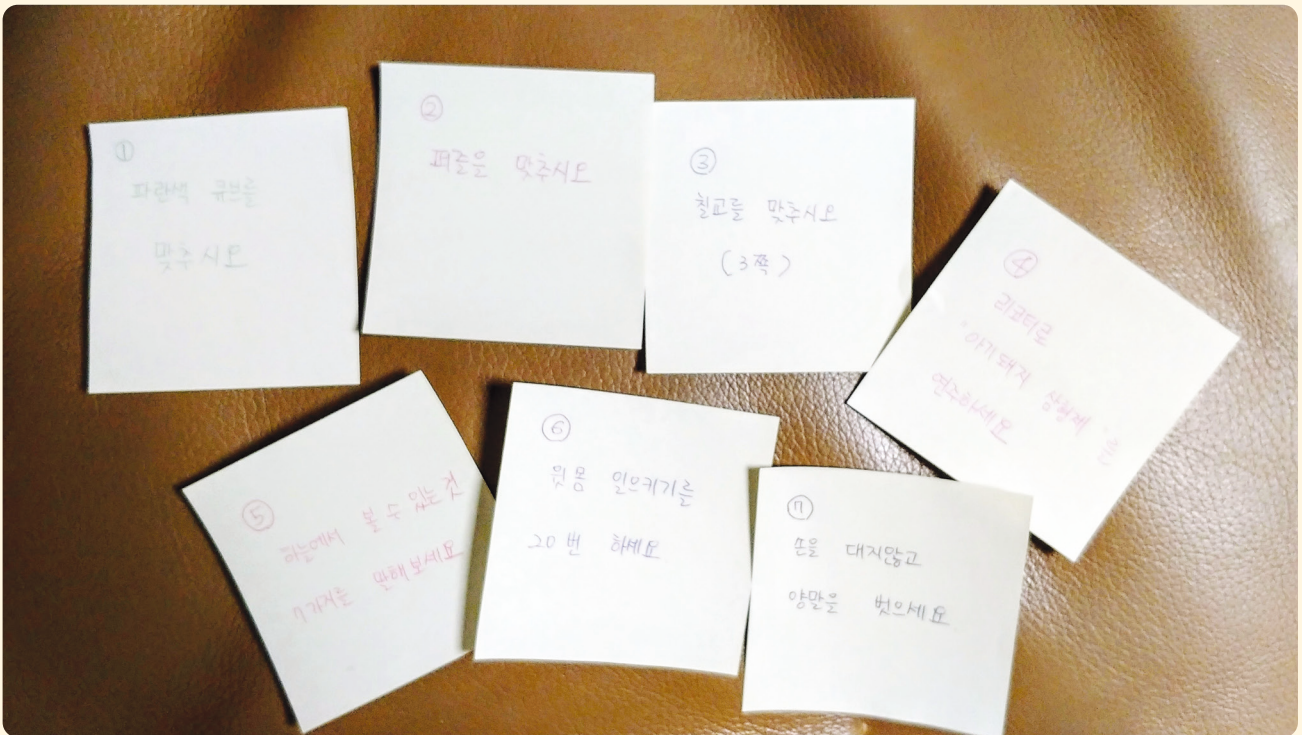 ①
파란색 큐브를
맞추시오
②
퍼즐을 맞추시오
③
칠교를 맞추시오
(3쪽)
④
리코더로
"아기돼지 삼형제"를
연주하세요
⑤
하늘에서 볼 수 있는 것
7가지를 말해보세요
⑥
윗몸 일으키기를
20번 하세요
⑦
손을 대지않고
양말을 벗으세요